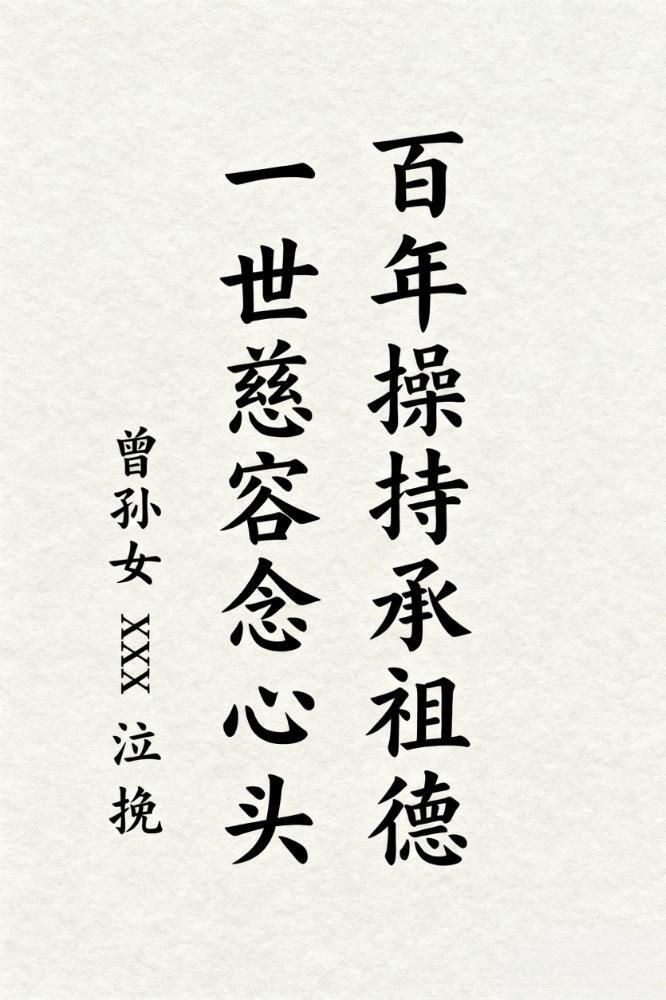 百年操持承祖德
一世慈容念心头
曾孙女 XXX 泣挽